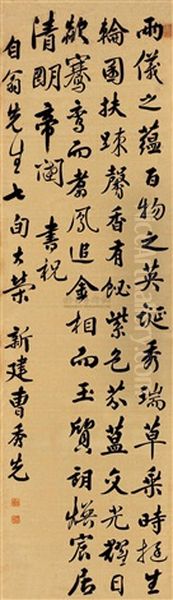 兩儀之蘊百物之英誕秀瑞草乘時挺生
輪囷扶踈馨香有飶紫色芬蒀文光耀日
欲騫鸞而翥鳳追金相而玉質詡煥宸居
清朙帝闔 書祝
自翁先生七旬大榮 新建曹秀先